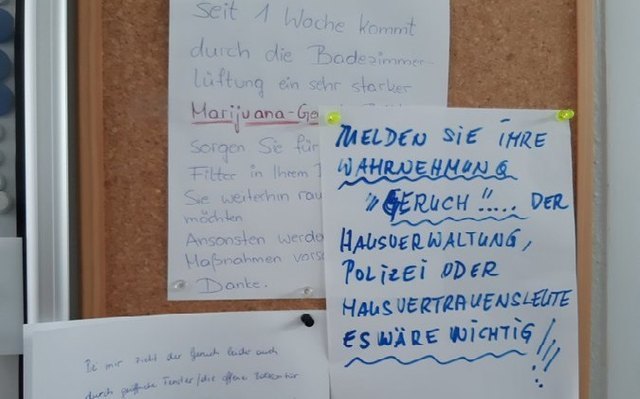 Seit 1 Woche kommt
durch die Badezimmer-
lüftung ein sehr starker
Marijuana-Ge
sorgen Sie für
Filter in Ihrem
Sie weiterhin rau
möchten
Ansonsten werde
Maßnahmen vors
Danke.
MELDEN SIE IHRE
WAHRNEHMUNG
"GERUCH".... DER
HAUSVERWALTUNG,
POLIZEI ODER
HAUSVERTRAUENSLEUTE
ES WÄRE WICHTIG!!!
Bei mir zieht der Geruch leider auch
durch geöffnete Fenster/die offene